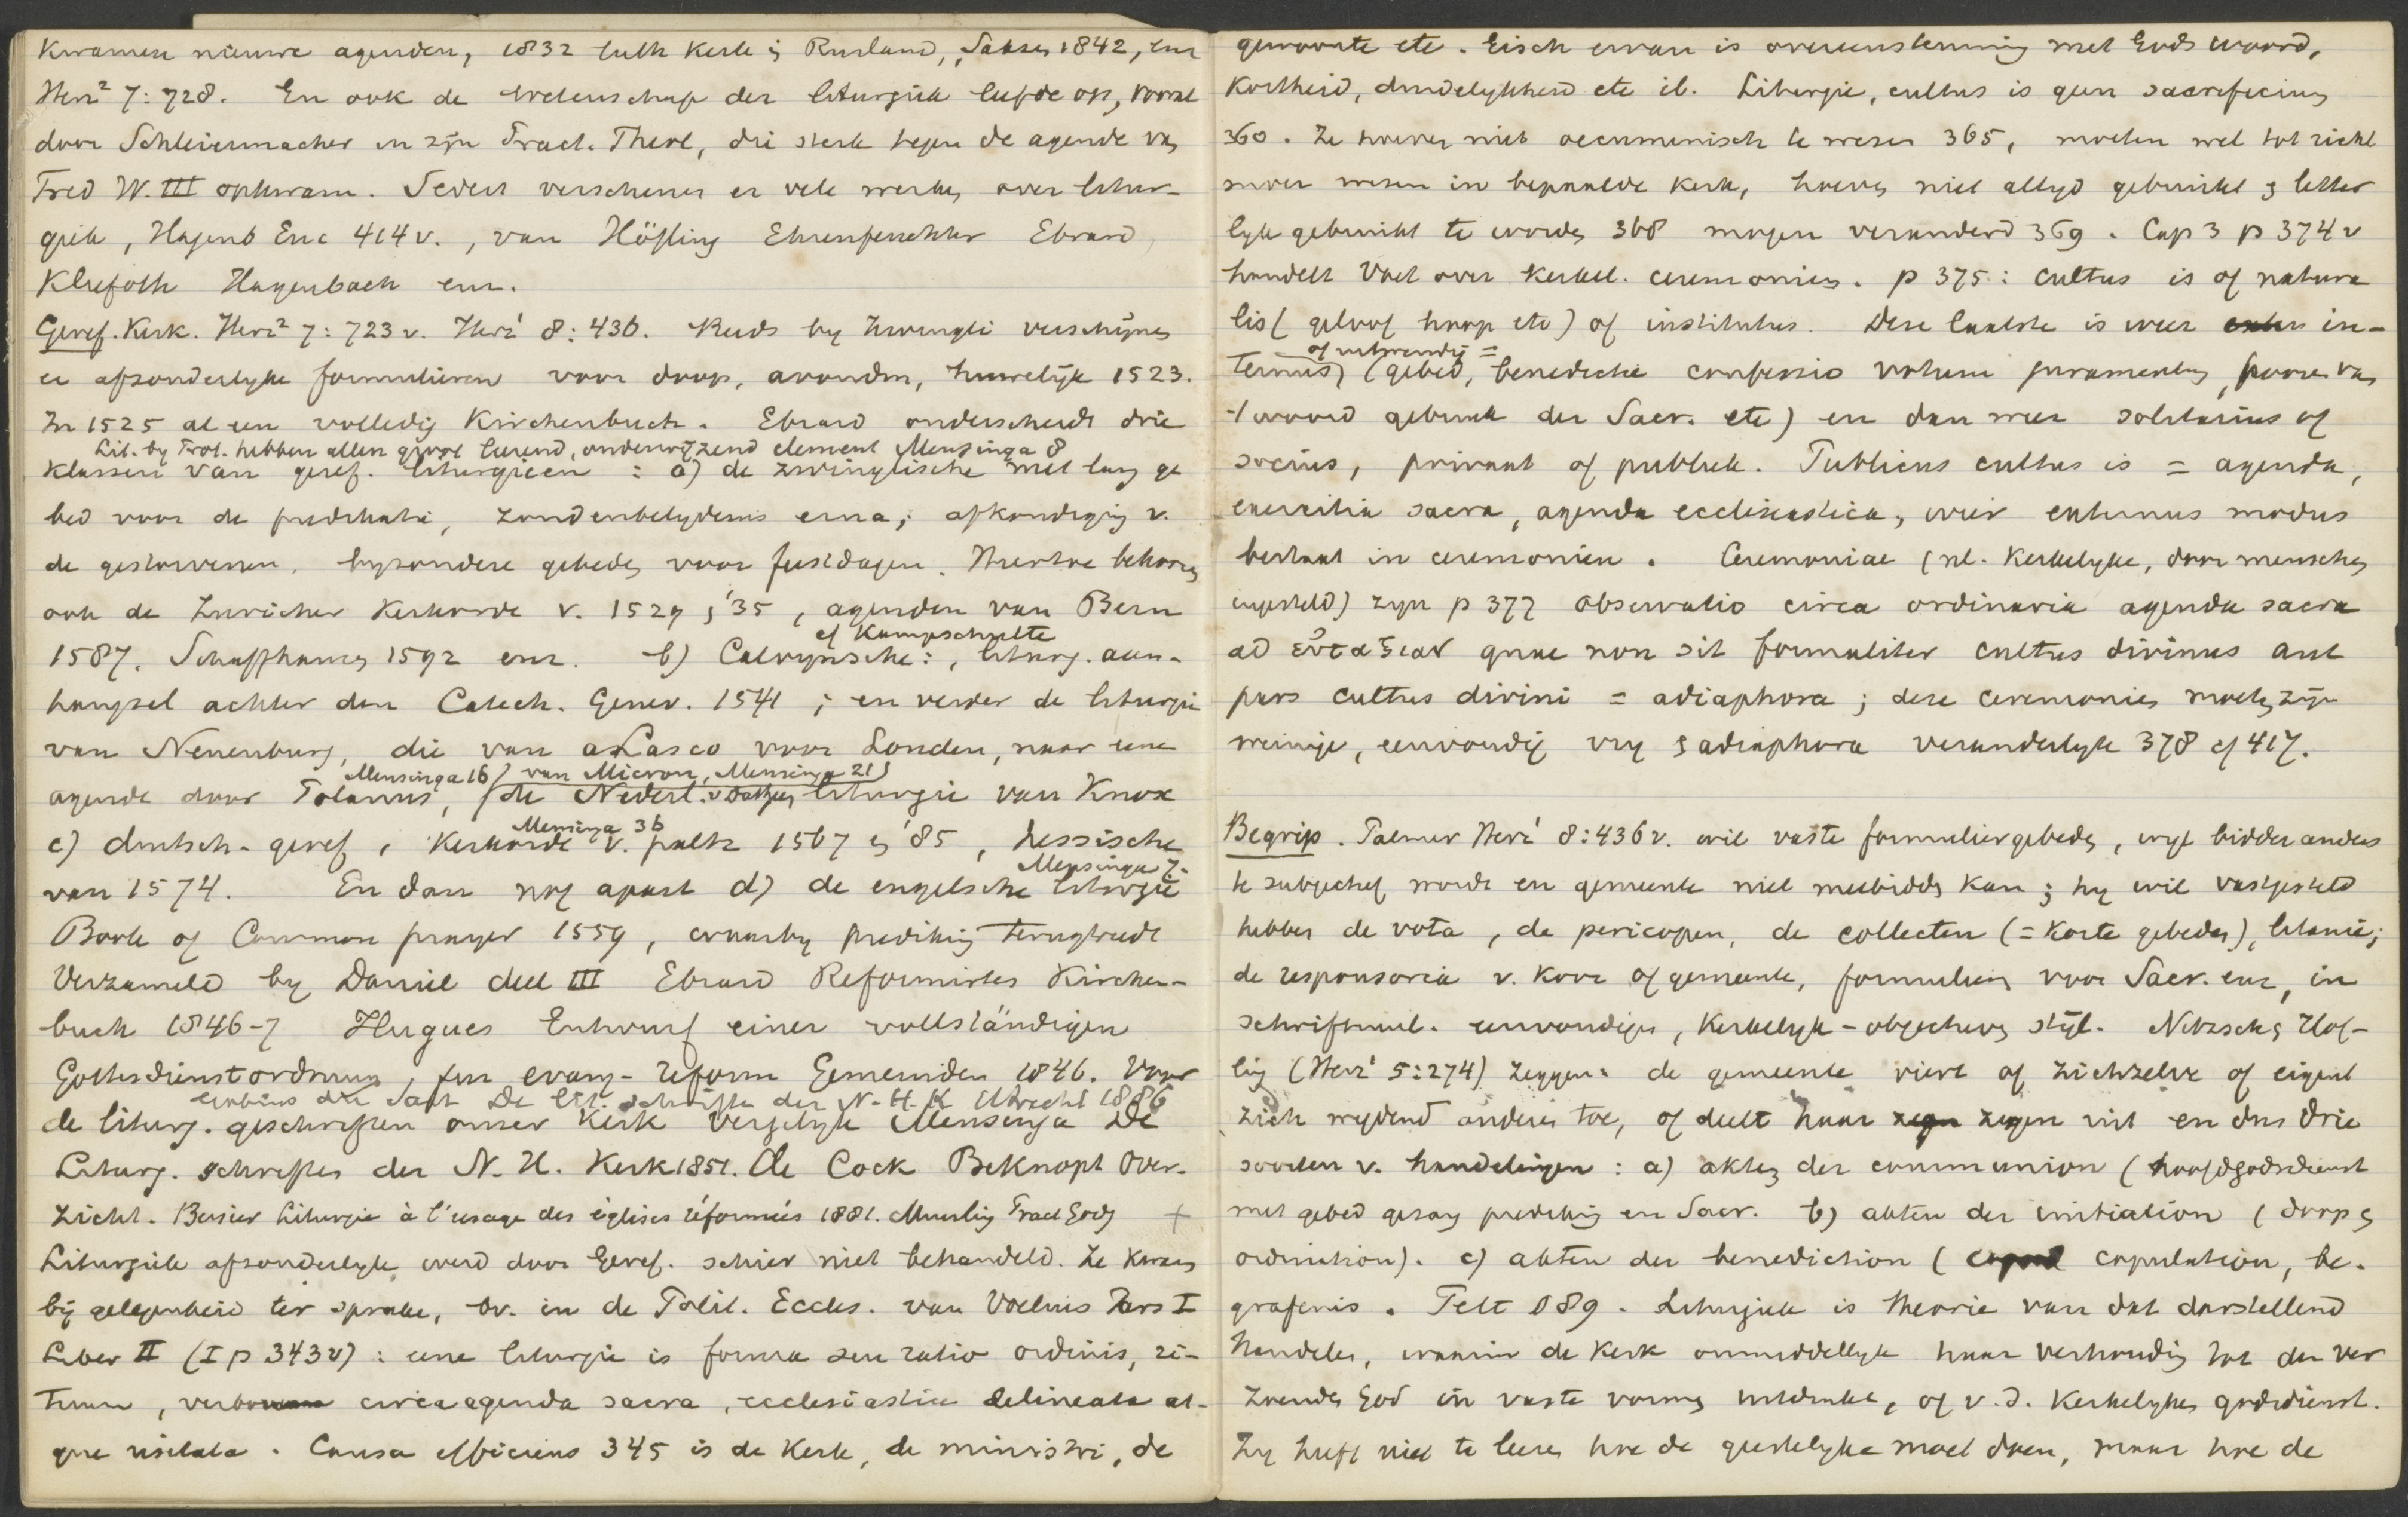 kwamen nieuwe agenden, 1832 luth Kerk in Rusland, Saksen 1842, enz
Herz² 7:728. En ook de wetenschap der liturgiek leefde op, vooral
door Schleiermacher in zijn Pract. Theol, die sterk tegen de agende van
Fred W. III opkwam. Sedert verschenen er vele werken over litur-
giek, Hagenb Enc 414 v., van Höfling Ehrenfeuchter Ebrard
Kliefoth Hagenbach enz.
Geref. Kerk. Herz² 7:723 v. Herz¹ 8:436. Reeds by Zwingli verschijnen
er afzonderlyke formulieren voor doop, avondm, huwelijk 1523.
In 1525 al een volledig Kirchenbuch. Ebrard onderscheidt drie
Lit. by Prot. hebben allen groot leerend, onderwijzend element Mensinga 8
klassen van geref. liturgieen : a) de zwinglische met lang ge
bed voor de predikatie, zondenbelydenis erna; afkondiging v.
de gestorvenen, byzondere gebeden voor feestdagen. Hiertoe behooren
ook de Zuricher Kerkorde v. 1529 en '35, agenden van Bern
1587, Schaffhausen 1592 enz. b) Calvynsche: , liturg. aan-
cf Kampschulte
hangsel achter den Catech. Genev. 1541 ; en verder de liturgie
van Neuenburg, die van a Lasco voor Londen, naar eene
Mensinga 16) van Micron, Mensinga 21)
agende door Polanus, (de Nederl. v Dathen liturgie van Knox
Mensinga 36
c) duitsch-geref, Kerkorde v. paltz 1567 en '85, hessische
van 1574. En dan nog apart d) de engelsche liturgie
Mensinga 7.
Book of Common prayer 1559, waarby prediking terugtreedt
Verzameld by Daniel deel III Ebrard Reformirtes Kirchen-
buch 1846-7 Hugues Entwurf einer vollständigen
Gottesdienstordnung, für evang-reform Gemeinden 1846. Voor
Gobius du Sart De lit. schriften der N. H. K Utrecht 1886
de liturg. geschriften onzer Kerk vergelyk Mensinga De
Liturg. schriften der N. H. Kerk 1851. De Cock Beknopt Over-
zicht. Bersier Liturgie à l'usage des églises réformées 1881. Muurling Pract Godg +
Liturgiek afzonderlyk werd door Geref. schier niet behandeld. Ze kwam
bij gelegenheid ter sprake, bv. in de Polit. Eccles. van Voetius Pars I
Liber II (I p 343 v) : eene liturgie is forma seu ratio ordinis, ri-
tuum, verborum circa agenda sacra, ecclesiastica delineata at-
que usitata. Causa efficiens 345 is de Kerk, de ministri, de
gewoonte etc. Eisch ervan is overeenstemming met Gods woord,
Kortheid, duidelykheid etc ib. Liturgie, cultus is geen sacrificium
360. Ze hoeven niet oecumenisch te wezen 365, moeten wel tot richt
snoer wezen in bepaalde Kerk, hoeven niet altyd gebruikt en letter
lyk gebruikt te worden 368 mogen veranderd 369. Cap 3 p 374 v
handelt Voet over Kerkel. ceremonien. p 375: cultus is of natura
lis (geloof hoop etc) of institutus. Deze laatste is weer in-
of uitwendig =
ternus, (gebed, benedictie confessio votum juramentum, hooren van
't woord gebruik der Sacr. etc) en dan weer solitarius of
socius, privaat of publiek. Publicus cultus is = agenda,
exercitia sacra, agenda ecclesiastica, wier externus modus
bestaat in ceremonien. Ceremoniae (nl. Kerkelyke, door menschen
ingesteld) zyn p 377 observatio circa ordinaria agenda sacra
ad εὐταξίαν quae non sit formaliter cultus divinus aut
pars cultus divini = adiaphora ; deze ceremonien moeten zijn
weinige, eenvoudig vry en adiaphora veranderlyk 378 cf 417.
Begrip. Palmer Herz¹ 8:436 v. wil vaste formuliergebeden, wijl bidden anders
te subjectief wordt en gemeente niet meebidden kan ; hy wil vastgesteld
hebben de vota, de pericopen, de collecten (= Korte gebeden), litanie;
de responsoria v. koor of gemeente, formulieren voor Sacr. enz, in
schriftuurl. eenvoudigen, Kerkelyk-objectieven stijl. Nitzsch en Höf-
ling (Herz¹ 5:274) zeggen: de gemeente viert of zichzelve of eigent
zich wydend anderen toe, of deelt haar zegen uit en dus drie
soorten v. handelingen : a) akten der communion (hoofdgodsdienst
met gebed gezang prediking en Sacr. b) akten der initiation (doop en
ordination). c) akten der benediction ( copulation, be-
grafenis. Pelt 589. Liturgiek is theorie van dat darstellend
Handelen, waarin de Kerk onmiddellyk haar verhouding tot den ver
zoenden God in vaste vormen uitdrukt, of v.d. Kerkelyken godsdienst.
Zy heeft niet te leeren hoe de geestelyke moet doen, maar hoe de